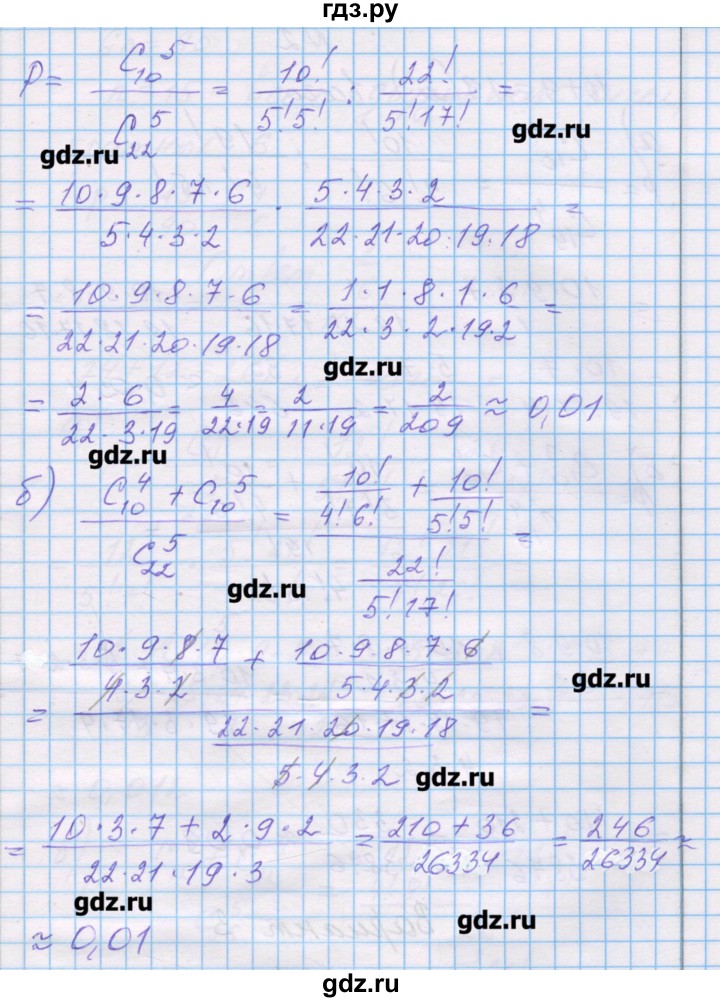 гдз.ру
P = C₁₀⁵ / C₂₂⁵ = 10! / 5!5! : 22! / 5!17! =
gdz.ru
gdz.ru
= 10·9·8·7·6 / 5·4·3·2 · 5·4·3·2 / 22·21·20·19·18 =
= 10·9·8·7·6 / 22·21·20·19·18 = 1·1·8·1·6 / 22·3·2·19·2 =
gdz.ru
= 2·6 / 22·3·19 = 4 / 22·19 = 2 / 11·19 = 2 / 209 ≈ 0,01
gdz.ru
б) C₁₀⁴ + C₁₀⁵ / C₂₂⁵ = 10! / 4!6! + 10! / 5!5! / 22! / 5!17! =
gdz.ru
= 10·9·8·7 / 4·3·2 + 10·9·8·7·6 / 5·4·3·2 / 22·21·20·19·18 / 5·4·3·2 =
gdz.ru
gdz.ru
= 10·3·7 + 2·9·2 / 22·21·19·3 = 210 + 36 / 26334 = 246 / 26334 ≈
gdz.ru
≈ 0,01
gdz.ru
gdz.ru